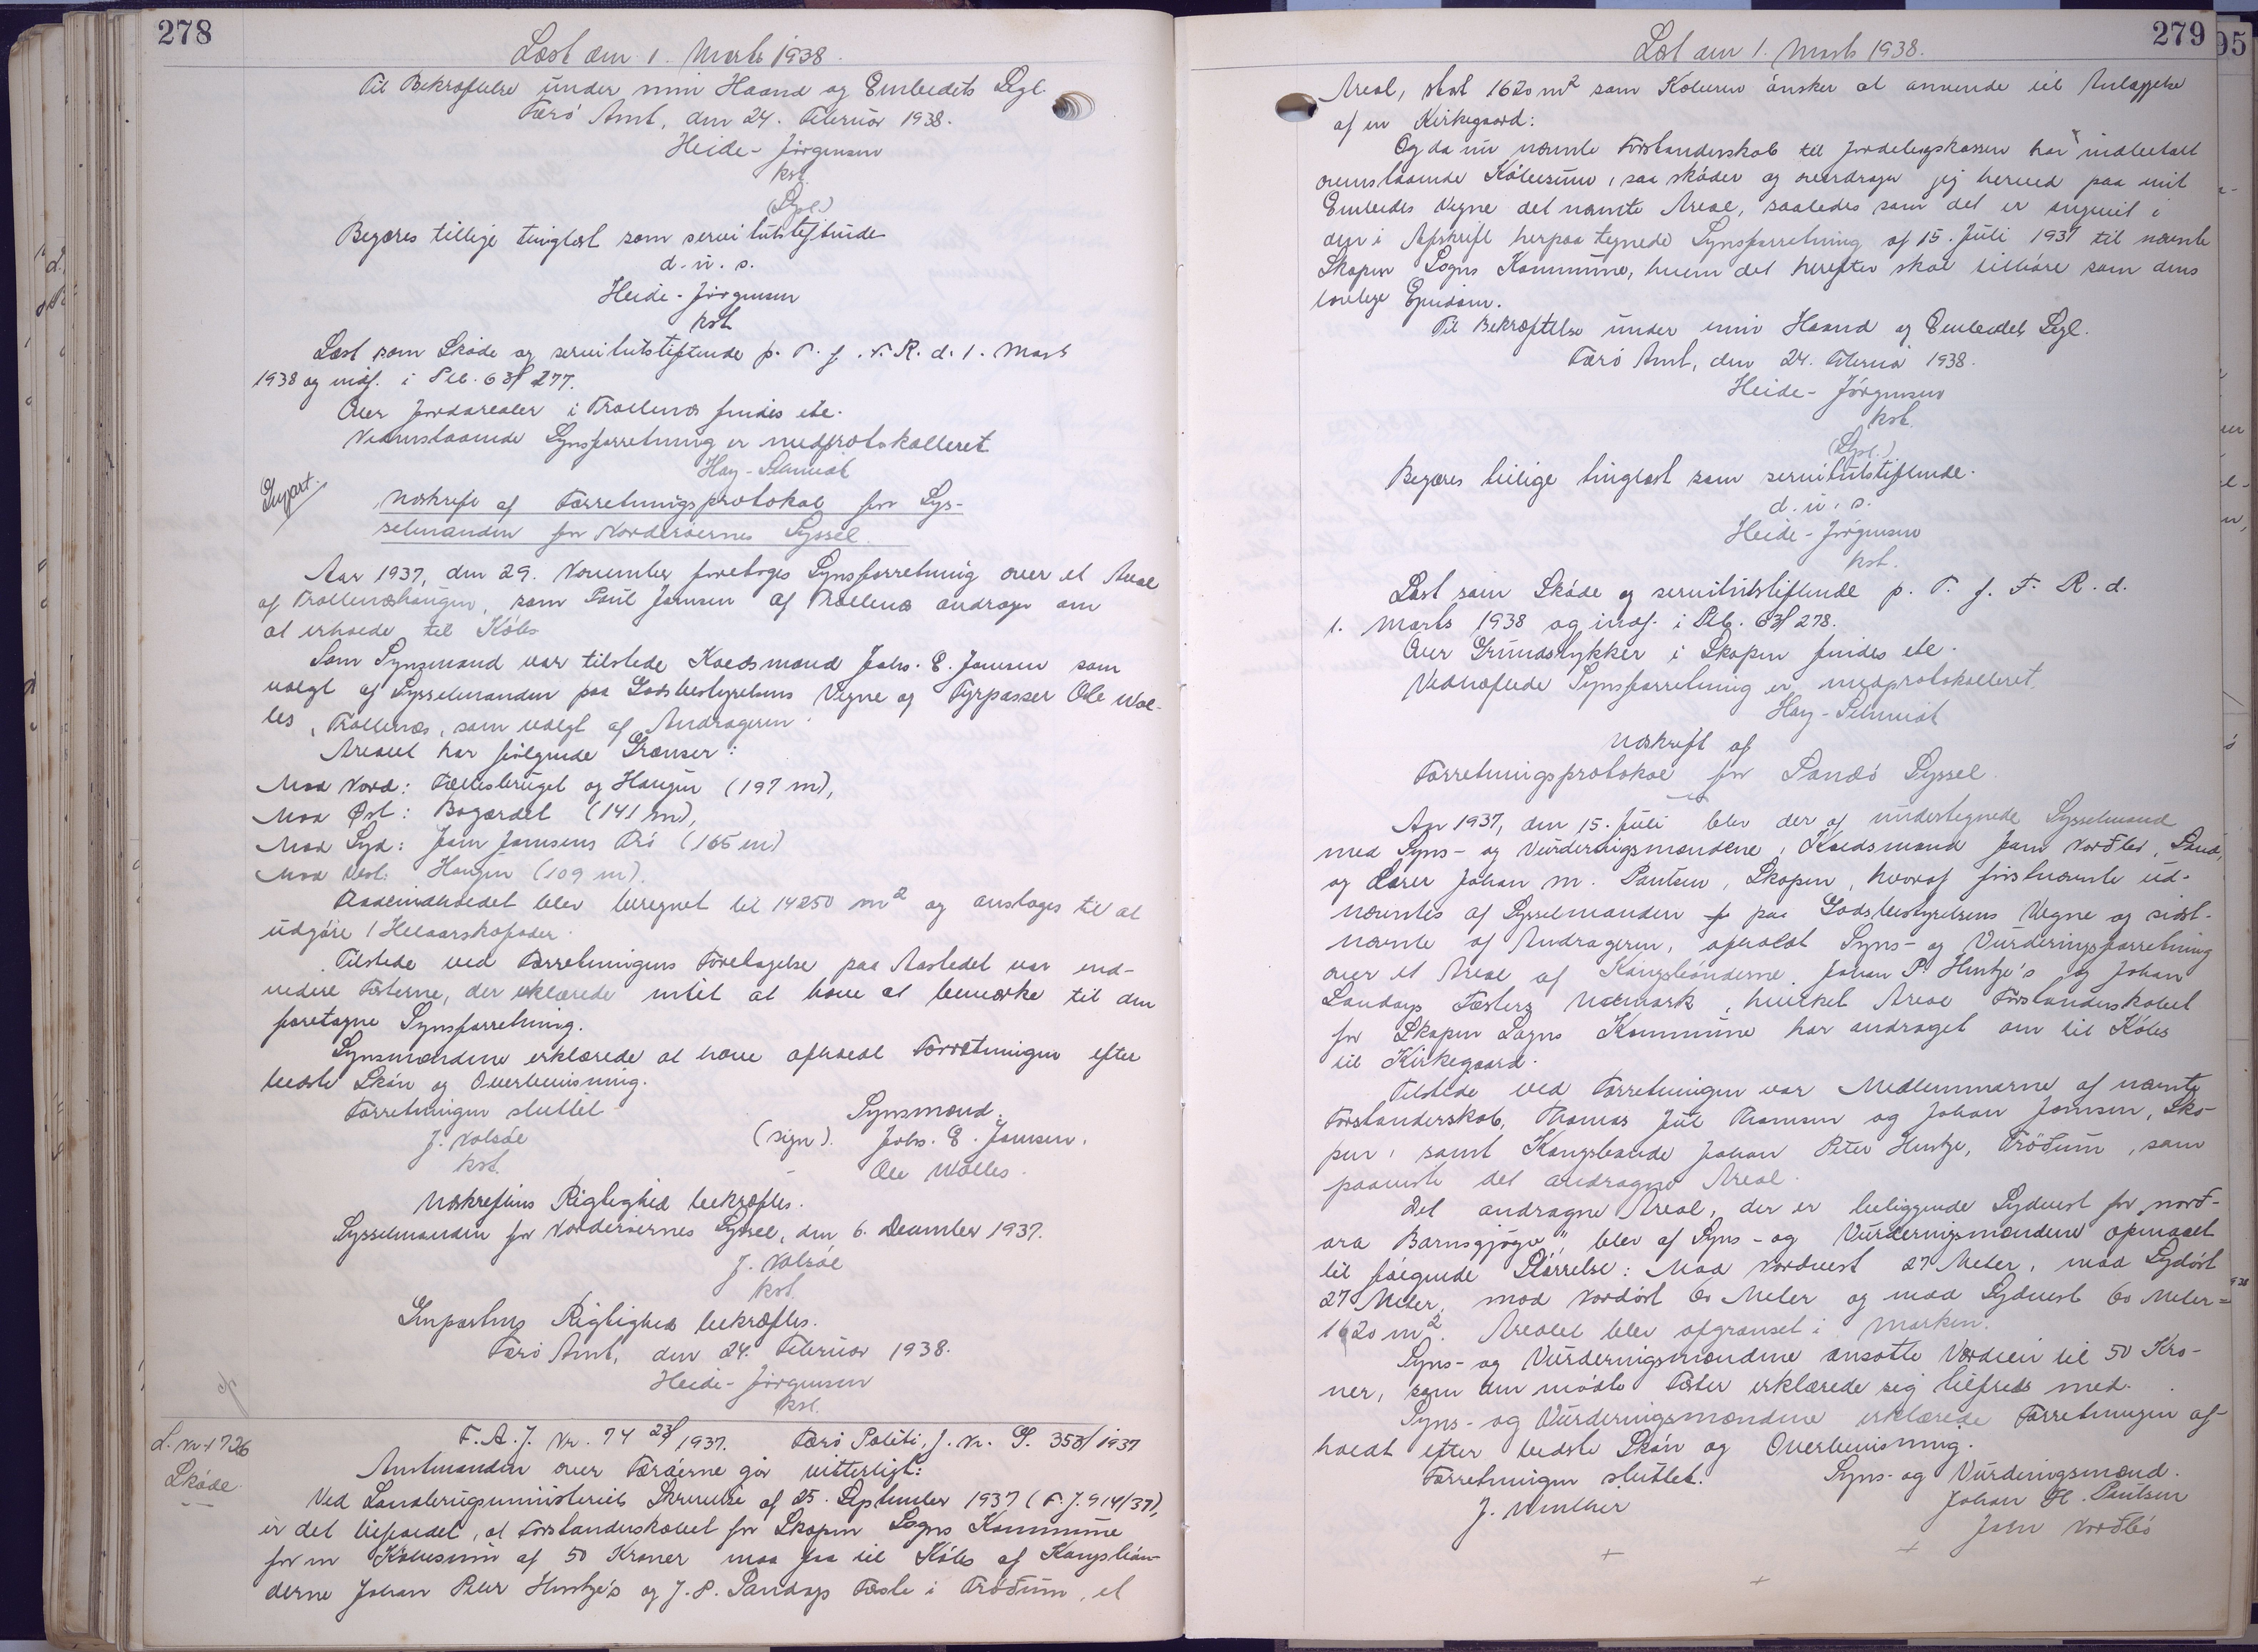 278
Læst den 1. Marts 1938.
Til Bekræftelse under min Haand og Embedets Segl.
Færø Amt, den 24. Februar 1938.
Heide-Jørgensen
kst.
(Segl.)
Begæres tillige tinglæst som servitutstiftende
d. u. s.
Heide-Jørgensen
kst
Læst som Skøde og servitutstiftende p. T. f. F. R. d. 1. Marts
1938 og indf. i Ptb. 6 3f 277.
Over Jordarealer i Trøllenæs findes ete.
Vedenstaaende Synsforretning er medprotokolleret
Hay-Schmidt
Genpart.
Udskrift af Forretningsprotokol for Sys-
selmanden for Norderøernes Syssel.
Aar 1937, den 29. November foretoges Synsforretning over et Areal
af Trøllenæshaugen, som Poul Joensen af Trøllenæs andrager om
at erholde til Købs
Som Synsmænd var tilstede Kvedsmand Johs. E. Joensen som
valgt af Sysselmanden paa Godsbestyrelsens Vegne og Fyrpasser Ole Wol-
les, Trøllenæs, som valgt af Andrageren.
Arealet har følgende Grænser:
Mod Nord: Fællesbruget og Haugen (197 m),
Mod Øst: Bøgærdet (141 m),
Mod Syd: Joen Joensens Trø (165 m)
Mod Vest: Haugen (109 m).
Fladeindholdet blev beregnet til 14250 m² og ansloges til at
udgøre 1 Helaarskofoder.
Tilstede ved Forretningens Foretagelse paa Aastedet var end-
videre Fæsterne, der erklærede intet at have at bemærke til den
foretagne Synsforretning.
Synsmændene erklærede at have afholdt Forretningen efter
bedste Skøn og Overbevisning.
Forretningen sluttet
Synsmænd:
J. Nolsøe
kst.
(sign). Johs. E. Joensen.
- Ole Wolles.
Udskriftens Rigtighed bekræftes.
Sysselmanden for Norderøernes Syssel, den 6. December 1937.
J. Nolsøe
kst.
Genpartens Rigtighed bekræftes.
Færø Amt, den 24. Februar 1938.
Heide-Jørgensen
kst.
L. Nr. 1726
Skøde.
F. A. J. Nr. 74 23/1937. Færø Politi, J. Nr. S. 353/1937
Amtmanden over Færøerne gør vitterligt:
Ved Landbrugsministeriets Skrivelse af 25. September 1937 (F. J. 914/37),
er det bifaldet, at Forstanderskabet for Skopun Sogns Kommune
for en Købesum af 50 Kroner maa faa til Købs af Kongsbøn-
derne Johan Peter Hentze's og J. P. Sandoys Fæste i Trøðum, et
279
Læst den 1. Marts 1938.
Areal, stort 1620 m² som Køberen ønsker at anvende til Anlæggelse
af en Kirkegaard:
Og da nu nævnte Forstanderskab til Jordebogskassen har indbetalt
ovenstaaende Købesum, saa skøder og overdrager jeg herved paa mit
Embedes Vegne det nævnte Areal, saaledes som det er angivet i
den i Afskrift herpaa tegnede Synsforretning af 15. Juli 1937 til nævnte
Skopun Sogns Kommune, hvem det herefter skal tilhøre som dens
lovlige Ejendom.
Til Bekræftelse under min Haand og Embedets Segl.
Færø Amt, den 24. Februar 1938.
Heide-Jørgensen
kst.
(Segl.)
Begæres tillige tinglæst som servitutstiftende.
d. u. s.
Heide-Jørgensen
kst.
Læst som Skøde og servitutstiftende p. T. f. F. R. d.
1. Marts 1938 og indf. i Ptb. 6 3f 278.
Over Grundstykker i Skopun findes ete.
Vedhæftede Synsforretning er medprotokolleret.
Hay-Schmidt
Udskrift af
Forretningsprotokol for Sandø Syssel.
Aar 1937, den 15. Juli blev der af undertegnede Sysselmand
med Syns- og Vurderingsmændene, Kvedsmand Joen Norðbø, Sand,
og Lærer Johan M. Poulsen, Skopun, hvoraf førstnævnte ud-
nævntes af Sysselmanden paa Godsbestyrelsens Vegne og sidst-
nævnte af Andrageren, afholdt Syns- og Vurderingsforretning
over et Areal af Kongsbønderne Johan P. Hentze's og Johan
Sandoys Fæstes Udmark, hvilket Areal Forstanderskabet
for Skopun Sogns Kommune har andraget om til Købs
til Kirkegaard.
Tilstede ved Forretningen var Medlemmerne af nævnte
Forstanderskab, Thomas Juul Thomsen og Johan Joensen, Sko-
pun, samt Kongsbonde Johan Peter Hentze, Trøðum, som
paaviste det andragne Areal.
Det andragne Areal, der er beliggende Sydvest for "norð-
ara Barnsgjógv", blev af Syns- og Vurderingsmændene opmaalt
til følgende Størrelse: Mod Nordvest 27 Meter, mod Sydøst
27 Meter, mod Nordøst 60 Meter og mod Sydvest 60 Meter =
1620 m². Arealet blev afgrænset i Marken.
Syns- og Vurderingsmændene ansatte Værdien til 50 Kro-
ner, som den mødte Fæster erklærede sig tilfreds med.
Syns- og Vurderingsmændene erklærede Forretningen af-
holdt efter bedste Skøn og Overbevisning.
Forretningen sluttet.
Syns- og Vurderingsmænd.
J. Winther
Johan M. Poulsen
Joen Norðbø